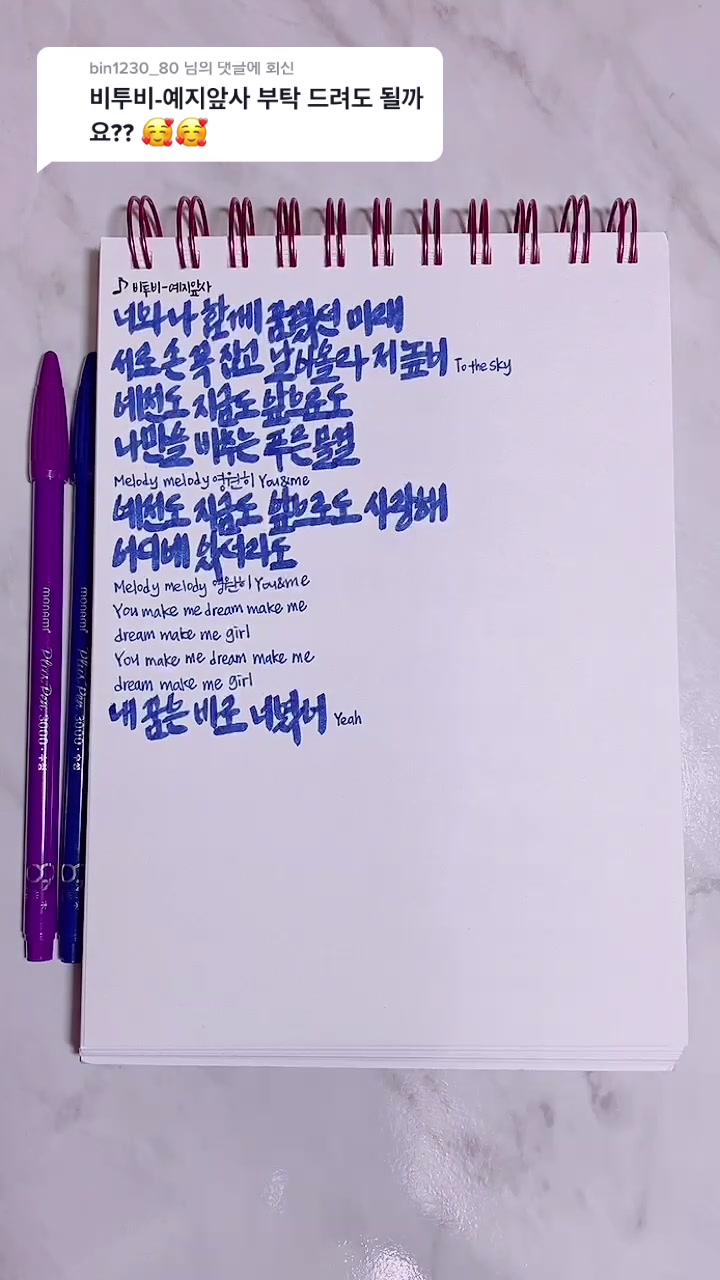 bin1230_80 님의 댓글에 회신
비투비-예지앞사 부탁 드려도 될까
요?? 🥰🥰
♪ 비투비-예지앞사
너와 나 함께 꿈꿨던 미래
서로 손 꼭 잡고 날아올라 저 높이 To the sky
예전도 지금도 앞으로도
나만을 비추는 푸른 물결
Melody melody 영원히 You&me
예전도 지금도 앞으로도 사랑해
어디에 있더라도
Melody melody 영원히 You&me
You make me dream make me
dream make me girl
You make me dream make me
dream make me girl
내 꿈은 바로 너였어 Yeah
monami Plus Pen 3000·수성
monami Plus Pen 3000·수성